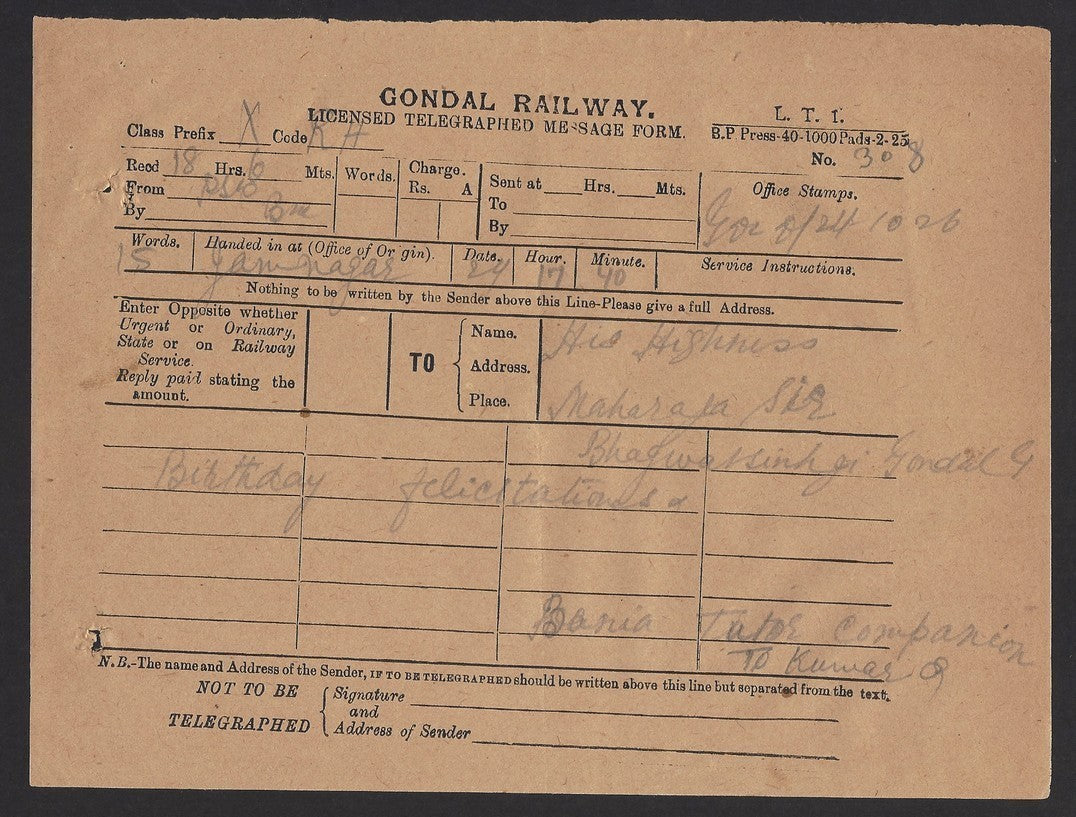 GONDAL RAILWAY.
LICENSED TELEGRAPHED MESSAGE FORM.
L. T. 1.
B.P Press-40-1000 Pads-2-25
Class Prefix X Code
No. 308
Recd 18 Hrs. 6 Mts.
From
By Bm
Words.
Charge.
Rs. A
Sent at Hrs. Mts.
To
By
Office Stamps.
24 10 26
Words. Handed in at (Office of Or gin). Date. Hour. Minute. Service Instructions.
15 Jamnagar 24 17 40
Nothing to be written by the Sender above this Line-Please give a full Address.
Enter Opposite whether
Urgent or Ordinary,
State or on Railway
Service.
Reply paid stating the
amount.
TO
Name.
Address.
Place.
His Highness
Maharaja Sir
Bhagwatsinhji Gondal G
Birthday felicitations
Bania Tutor Companion
To Kumar
N.B.-The name and Address of the Sender, IF TO BE TELEGRAPHED should be written above this line but separated from the text.
NOT TO BE
TELEGRAPHED
Signature
and
Address of Sender